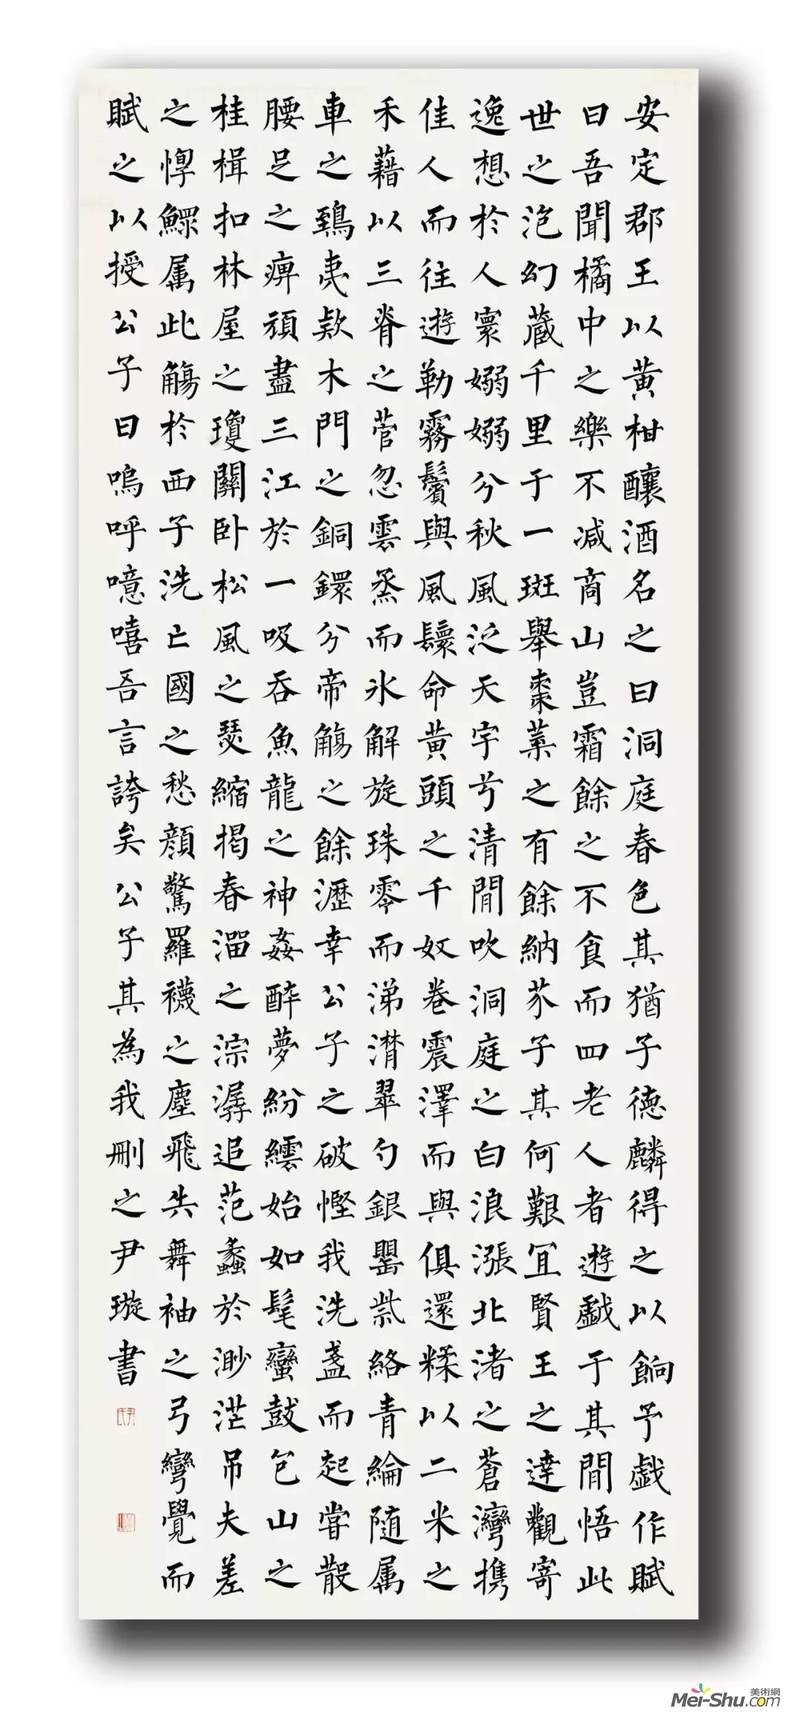 安定郡王以黄柑釀酒名之曰洞庭春色其猶子德麟得之以餉予戯作賦
曰吾聞橘中之樂不减商山豈霜餘之不食而四老人者遊戯于其間悟此
世之泡幻藏千里于一斑舉棗葉之有餘納芥子其何艱宜賢王之達觀寄
逸想於人寰嫋嫋兮秋風泛天宇兮清閒吹洞庭之白浪漲北渚之蒼灣携
佳人而往遊勒霧鬢與風鬟命黄頭之千奴卷震澤而與俱還糅以二米之
禾藉以三脊之菅忽雲烝而氷解旋珠零而涕潸翠勺銀罌紫絡青綸随属
車之鴟夷款木門之銅鐶分帝觴之餘瀝幸公子之破慳我洗盞而起嘗散
腰足之痹頑盡三江於一吸吞魚龍之神姦醉夢紛紜始如髦蠻鼓包山之
桂楫扣林屋之瓊關卧松風之瑟縮揭春溜之淙潺追范蠡於渺茫吊夫差
之惸鰥属此觴於西子洗亡國之愁顔驚羅襪之塵飛失舞袖之弓彎覺而
賦之以授公子曰嗚呼噫嘻吾言誇矣公子其為我刪之尹璇書
美術網
Mei-Shu.com